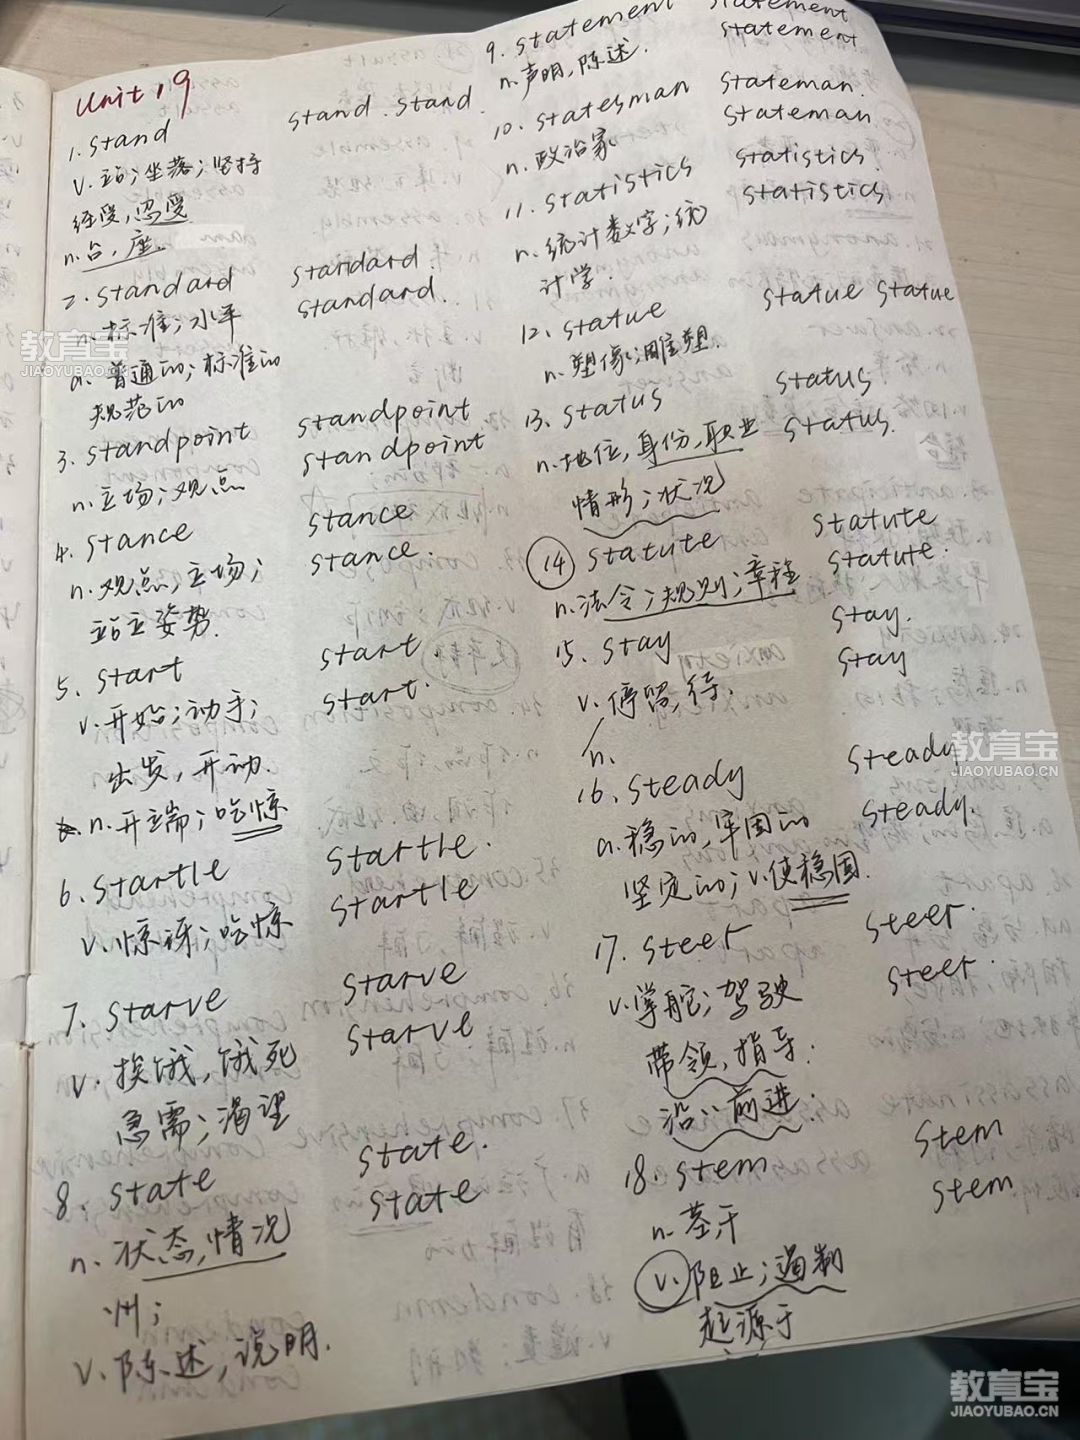 Unit 19
1. stand stand. stand
v. 站;坐落;坚持
经受,忍受
n. 台,座.
2. standard standard
standard.
n. 标准;水平
a. 普通的;标准的
规范的
3. standpoint standpoint
standpoint
n. 立场;观点
4. stance stance
stance.
n. 观点,立场;
站立姿势.
5. start start
start.
v. 开始;动手;
出发,开动.
n. 开端;吃惊
6. startle startle.
startle
v. 惊讶;吃惊
7. starve starve
starve
v. 挨饿,饿死
急需;渴望
8. state state.
state
n. 状态,情况
州;
v. 陈述,说明.
9. statement statement
statement
n. 声明,陈述.
10. statesman stateman.
stateman
n. 政治家
11. statistics statistics
statistics
n. 统计数字;统
计学.
12. statue statue statue
n. 塑像;雕塑.
13. status status
status.
n. 地位,身份,职业
情形;状况
14 statute statute
statute.
n. 法令;规则;章程
15. stay stay.
stay
v. 停留,待;
n.
16. steady steady
steady.
a. 稳的,牢固的
坚定的;v.使稳固.
17. steer steer.
steer.
v. 掌舵;驾驶
带领,指导;
沿…前进;
18. stem stem
stem
n. 茎干
v. 阻止;遏制
起源于
教育宝
JIAOYUBAO.CN
教育宝
JIAOYUBAO.CN
教育宝
JIAOYUBAO.CN